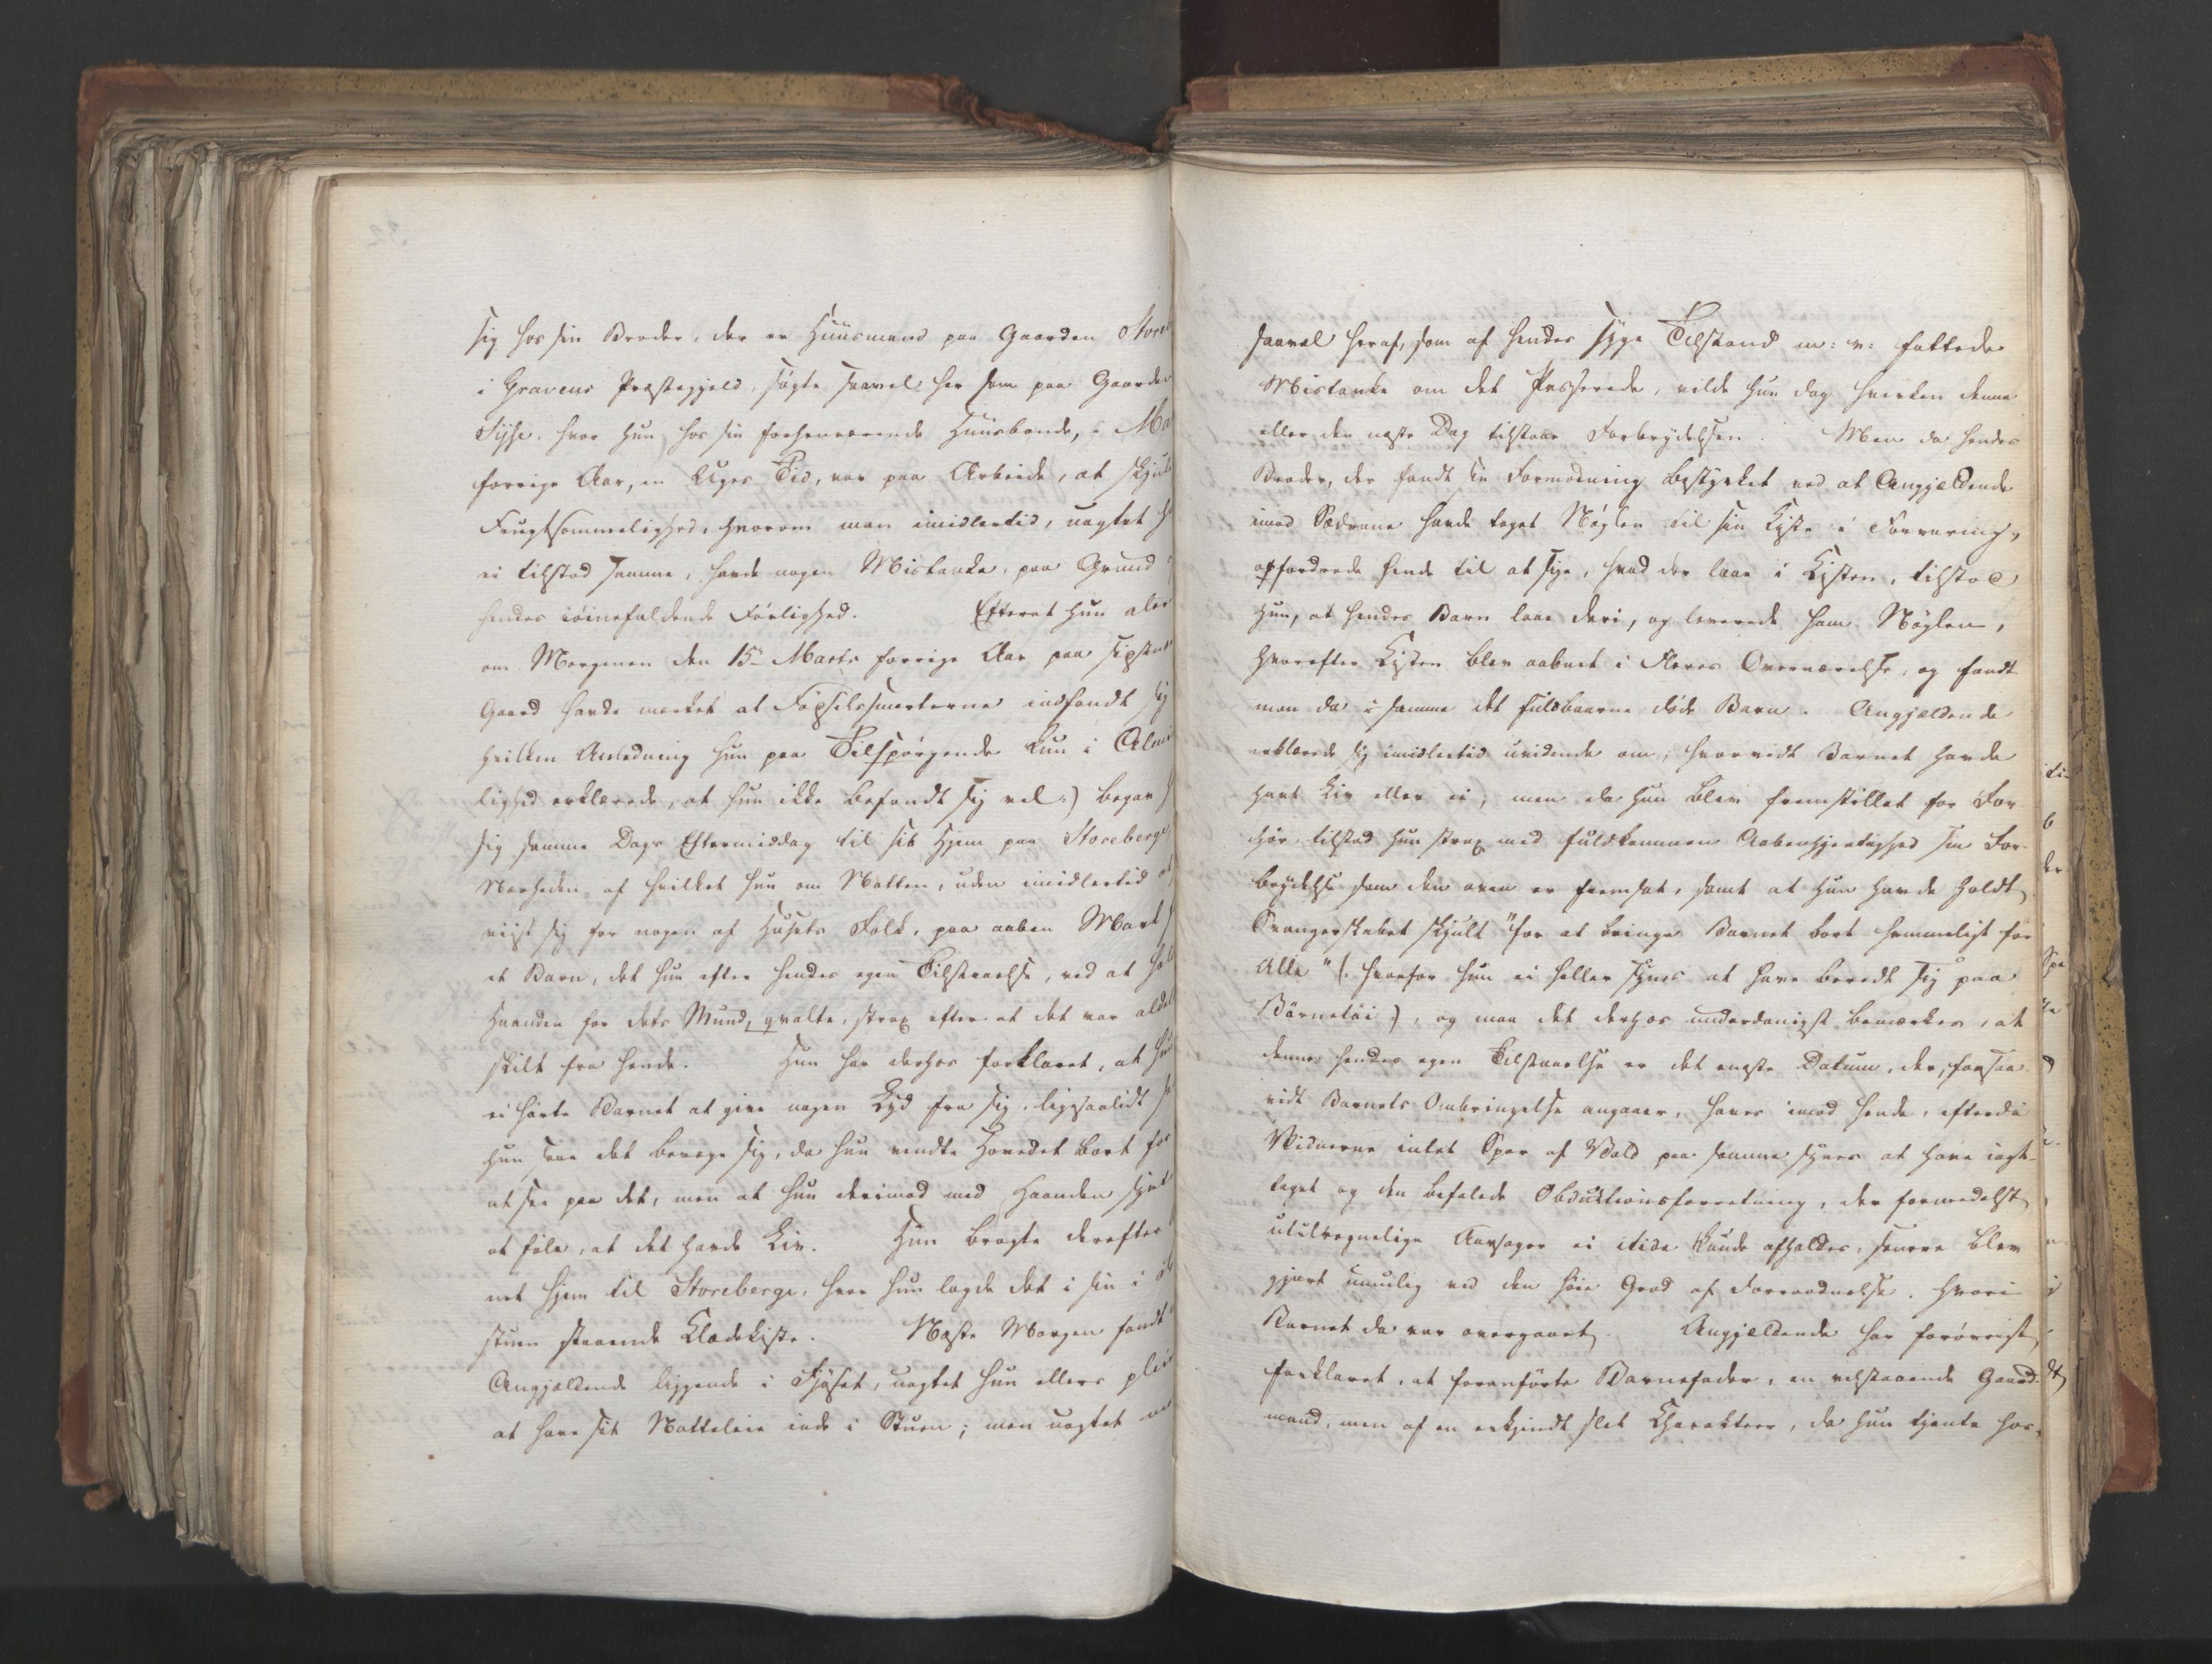 sig hos sin Broder, der er Huusmand paa Gaarden Store
i Gravens Præstegjeld, søgte saavel her som paa Gaarden
hvor hun, hos sin forhenværende Huusbonde, i Ma
forrige Aar, en Uges Tid, var paa Arbeide, at skjule
Frugtsommelighed, hvorom man imidlertid, uagtet h
ei tilstod samme, havde nogen Mistanke, paa Grund
hendes iøinefaldende Førlighed. Efterat hun aler
om Morgenen den 15de Marts forrige Aar paa sidst
Gaard havde mærket at Fødselssmerterne indfandt sig
hvilken Anledning hun paa Tilspørgende kun i Almi
lighed erklærede, at hun ikke befandt sig vel:) begav h
sig samme Dags Eftermiddag til sit Hjem paa Storeberge,
Nærheden af hvilket hun om Natten, uden imidlertid at
viist sig for nogen af Husets Folk, paa aaben Mark f
et Barn, det hun efter hendes egen Tilstaaelse, ved at hol
Haanden for dets Mund, qvalte, strax efter at det var aldel
skilt fra hende. Hun har derhos forklaret, at hun
ei hørte Barnet at give nogen Lyd fra sig, ligesaalidt s
hun saae det bevæge sig, da hun vendte Hovedet bort for
at see paa det, men at hun derimod med Haanden syn
at føle, at det havde Liv. Hun bragte derefter
net hjem til Storeberge, hvor hun lagde det i sin i
stuen staaende Klædekiste. Næste Morgen fandt
Angjældende liggende i Fjøset, uagtet hun ellers plei
at have sit Natteleie inde i Stuen; men uagtet m
saavel heraf, som af hendes syge Tilstand m: v: fattede
Mistanke om det Passerede, vilde hun dog hverken denne
eller den næste Dag tilstaae Forbrydelsen. Men da hendes
Broder, der fandt sin Formodning bestyrket ved at Angjældende
imod Sædvane havde taget Nøglen til sin Kiste i Forvaring,
opfordrede hende til at sige, hvad der laae i Kisten, tilstod
hun, at hendes Barn laae deri, og leverede ham Nøglen,
hvorefter Kisten blev aabnet i Fleres Overværelse, og fandt
man da i samme det fuldbaarne døde Barn. Angjældende
erklærede sig imidlertid uvidende om, hvorvidt Barnet havde
havt Liv eller ei; men da hun blev fremstillet for For
hør, tilstod hun strax med fuldkommen Aabenhjertighed sin For-
brydelse som den oven er fremsat, samt at hun havde holdt
Svangerskabet skjult "for at bringe Barnet bort hemmeligt for
Alle" (: hvorfor hun ei heller synes at have beredt sig paa
Børnetøi:), og maa det derhos underdanigst bemærkes, at
denne hendes egen Tilstaaelse er det eneste Datum, der, forsaa-
vidt Barnets Ombringelse angaaer, haves imod hende, efterdi
Vidnerne intet Spor af Vold paa samme synes at have iagt-
taget og den befalede Obduktionsforretning, der formedelst
utilregnelige Aarsager ei itide kunde afholdes, senere blev
gjort umulig ved den høie Grad af Forraadnelse, hvori
Barnet da var overgaaet. Angjældende har forøvrigt
forklaret, at foranførte Barnefader, en velstaaende Gaard-
mand, men af en erkjendt slet Charakteer, da hun tjente hos